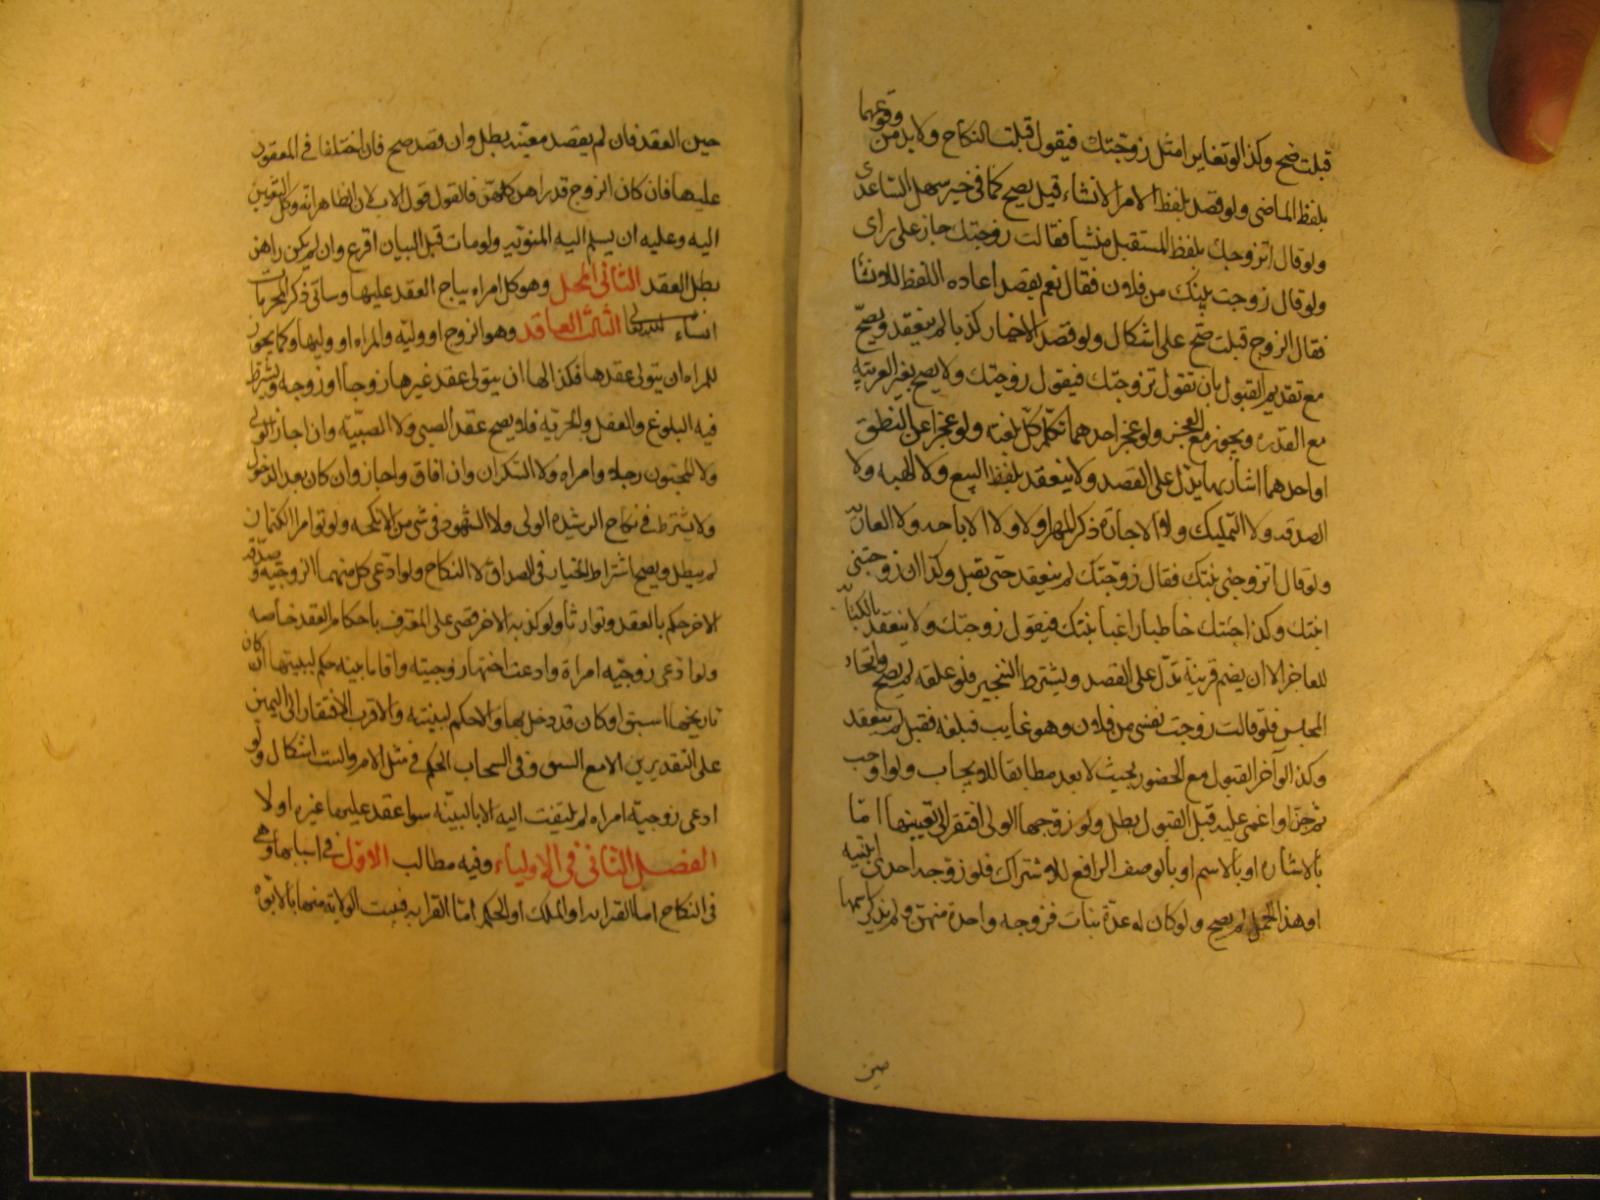 قبلت صح وكذا لو تغايرا مثل زوجتك فيقول قبلت النكاح ولا بد من وقوعهما
بلفظ الماضى ولو قصد بلفظ الامر الانشاء قيل يصح كما فى خبر سهل الساعدى
ولو قال اتزوجك بلفظ المستقبل منشأ فقالت زوجتك جاز على راى
ولو قال زوجت بنتك من فلان فقال نعم بقصد اعاده اللفظ للانشا
فقال الزوج قبلت صح على اشكال ولو قصد الاخبار كذبا لم ينعقد ويصح
مع تقديم القبول بان تقول تزوجتك فيقول زوجتك ولا يصح بغير العربيه
مع القدره ويجوز مع العجز ولو عجز احدهما تكلم كل بلغته ولو عجزا عن النطق
او احدهما اشار بما يدل على القصد ولا ينعقد بلفظ البيع ولا الهبه ولا
الصدقه ولا التمليك ولا الاجازة ذكر المهر اولا ولا الاباحه ولا العاريه
ولو قال اتزوجنى بنتك فقال زوجتك لم ينعقد حتى يقبل وكذا ان زوجتنى
ابنتك وكذا جئتك خاطبا راغبا بنتك فيقول زوجتك ولا ينعقد بالكتابه
للعاجز الا ان يضم قرينة تدل على القصد ويشترط التنجيز فلو علقه لم يصح واتحاد
المجلس فلو قالت زوجت نفسى من فلان وهو غايب فبلغه فقبل لم ينعقد
وكذا لو آخر القبول مع الحضور بحيث لا يعد مطابقا للايجاب ولو اوجب
ثم جن او اغمى عليه قبل القبول بطل ولو زوجها الولى افتقر الى تعيينها اما
بالاشاره او بالاسم او بالوصف الرافع للاشتراك فلو زوجه احدى ابنتيه
او هذا الحمل لم يصح ولو كان له عدة بنات فزوجه واحدة منهن ولم يذكر اسمها
حين
حين العقد فان لم يقصد معينه بطل وان قصد صح فان اختلفا فى المعقود
عليها فان كان الزوج قد راهن كلهن فالقول قول الاب لان الظاهر انه وكل التعيين
اليه وعليه ان يسلم اليه المنويه ولو مات قبل البيان اقرع وان لم يكن راهن
بطل العقد الثانى المحل وهو كل امراه يباح العقد عليها وسياتى ذكر المحرمات
انشاء الله تعالى الثالث العاقد وهو الزوج او وليه والمراه او وليها وكما يجوز
للمراه ان يتولى عقدها فكذا لها ان يتولى عقد غيرها زوجا او زوجه ويشترط
فيه البلوغ والعقل والحريه فلا يصح عقد الصبى ولا الصبيه وان اجاز الولى
ولا المجنون رجلا وامراه ولا السكران وان افاق واجاز وان كان بعد الدخول
ولا يشترط فى نكاح الرشيدة الولى ولا الشهود فى شى من الانكحه ولو تو امرا الكتمان
لم يبطل ويصح اشتراط الخيار فى الصداق لا النكاح ولو ادعى كل منهما الزوجيه وصدقه
الاخر حكم بالعقد وتوارثا ولو كذبه الاخر قضى على المعترف باحكام العقد خاصه
ولو ادعى زوجيه امراة وادعت اختها زوجيته واقاما بينه حكم لبينتها ان كان
تاريخها اسبق او كان قد دخل بها والا حكم لبينته والاقرب الافتقار الى اليمين
على التقديرين الا مع السبق وفى انسحاب الحكم فى مثل الام والبنت اشكال ولو
ادعى زوجية امراه لم يلتفت اليه الا بالبينه سوا عقد عليها غيره او لا
الفصل الثانى فى الاولياء وفيه مطالب الاول فى اسبابها وهى
فى النكاح اما القرابه او الملك او الحكم اما القرابه فيثبت الولايه منها بالابوه